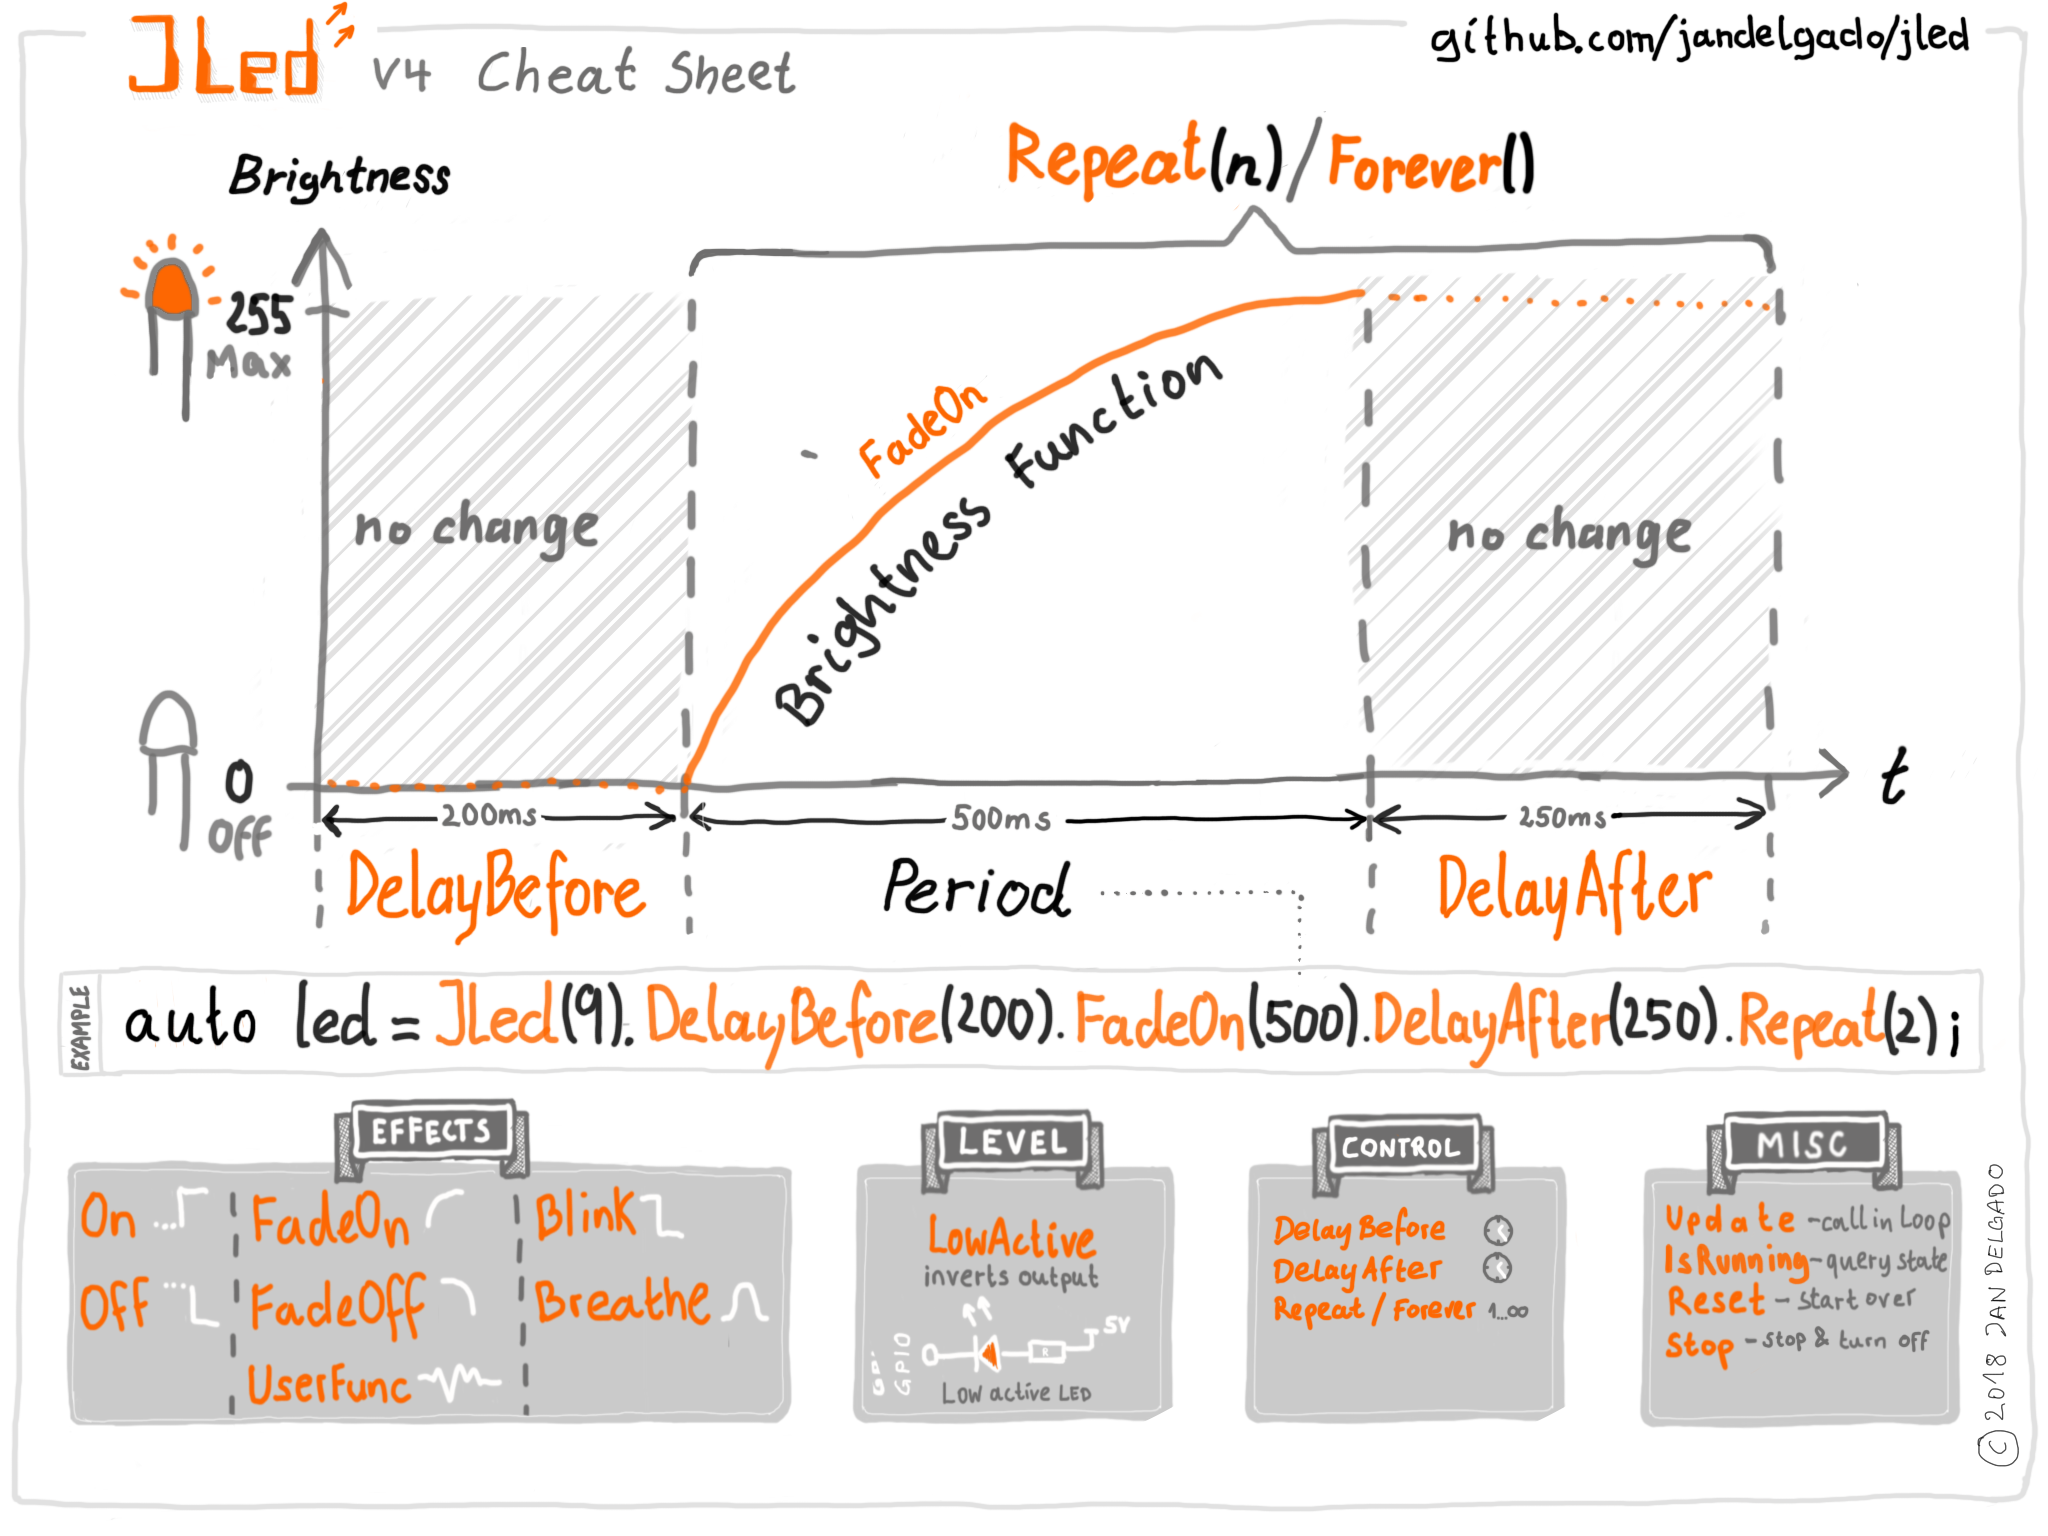 JLed v4 Cheat Sheet
github.com/jandelgado/jled
Repeat(n)/Forever()
Brightness
255
Max
FadeOn
Brightness Function
no change
no change
0
Off
t
200ms
500ms
250ms
DelayBefore
Period
DelayAfter
EXAMPLE
auto led = JLed(9).DelayBefore(200).FadeOn(500).DelayAfter(250).Repeat(2);
EFFECTS
On
FadeOn
Blink
Off
FadeOff
Breathe
UserFunc
LEVEL
LowActive
inverts output
5V
R
GPIO
Low active LED
CONTROL
DelayBefore
DelayAfter
Repeat / Forever 1...∞
MISC
Update - call in Loop
IsRunning - query state
Reset - start over
Stop - stop & turn off
© 2018 JAN DELGADO